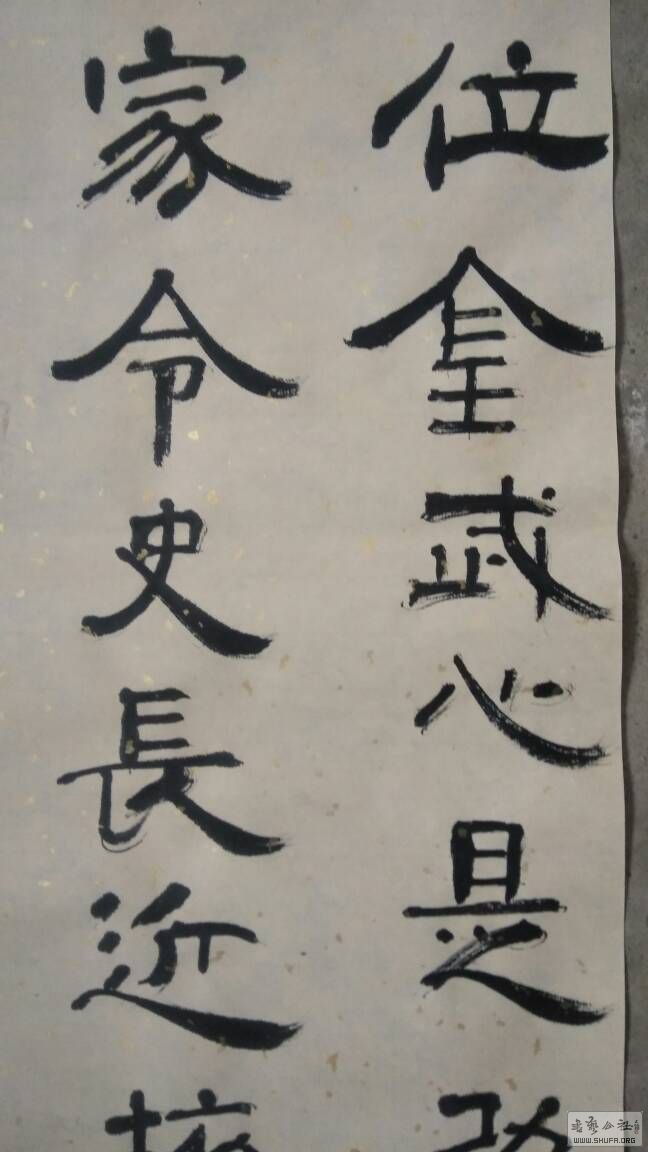 位 武心是
家令史長近
書藝公社
WWW.SHUFA.ORG